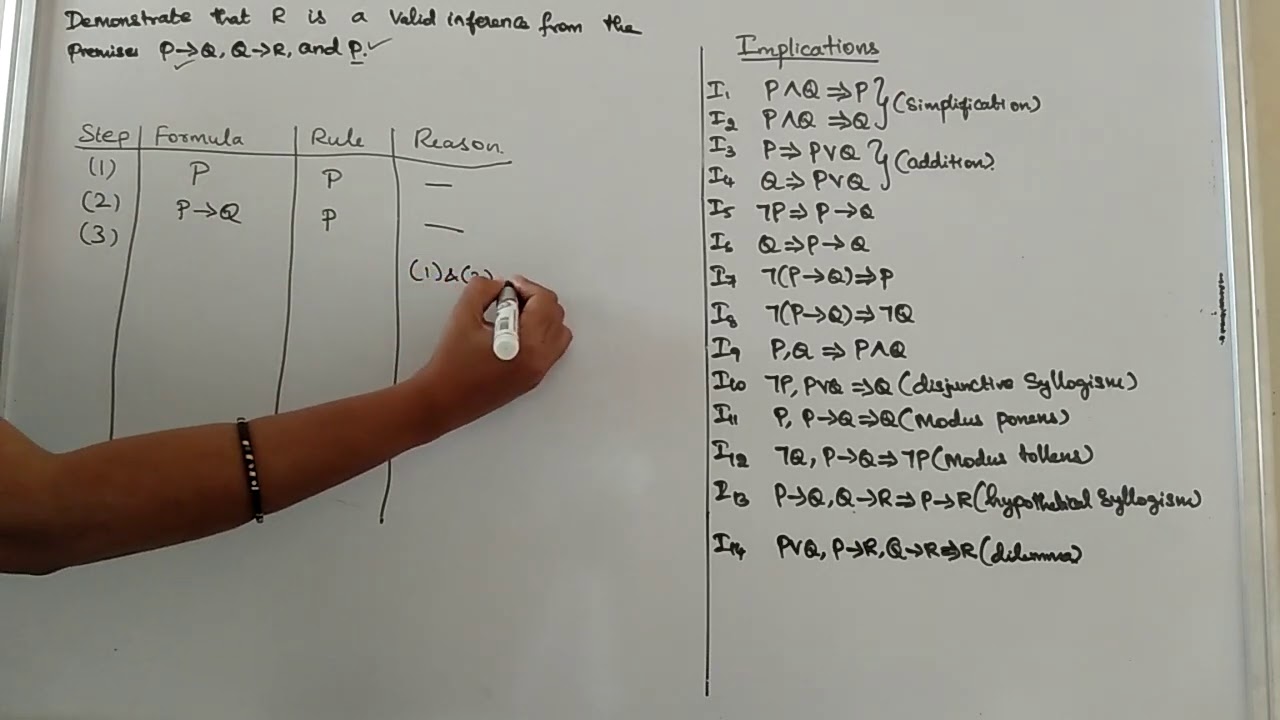 Demonstrate that R is a valid inference from the
premises P→Q, Q→R, and P.✓
Step Formula Rule Reason.
(1) P P —
(2) P→Q P —
(3)
(1)&(2)
Implications
I₁ P∧Q ⇒ P
I₂ P∧Q ⇒ Q } (Simplification)
I₃ P ⇒ P∨Q
I₄ Q ⇒ P∨Q } (addition)
I₅ ¬P ⇒ P→Q
I₆ Q ⇒ P→Q
I₇ ¬(P→Q) ⇒ P
I₈ ¬(P→Q) ⇒ ¬Q
I₉ P, Q ⇒ P∧Q
I₁₀ ¬P, P∨Q ⇒ Q (disjunctive Syllogism)
I₁₁ P, P→Q ⇒ Q (Modus ponens)
I₁₂ ¬Q, P→Q ⇒ ¬P (Modus tollens)
I₁₃ P→Q, Q→R ⇒ P→R (hypothetical Syllogism)
I₁₄ P∨Q, P→R, Q→R ⇒ R (dilemma)